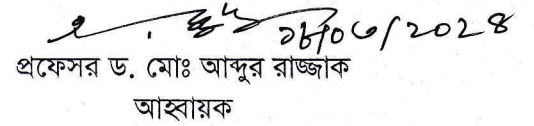 ১৮/০৩/২০২৪
প্রফেসর ড. মোঃ আব্দুর রাজ্জাক
আহবায়ক